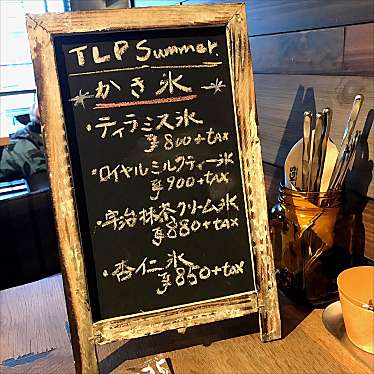 TLP Summer.
かき氷
・ティラミス氷
¥800+tax
・ロイヤルミルクティー氷
¥900+tax
・宇治抹茶クリーム氷
¥880+tax
・杏仁氷
¥850+tax